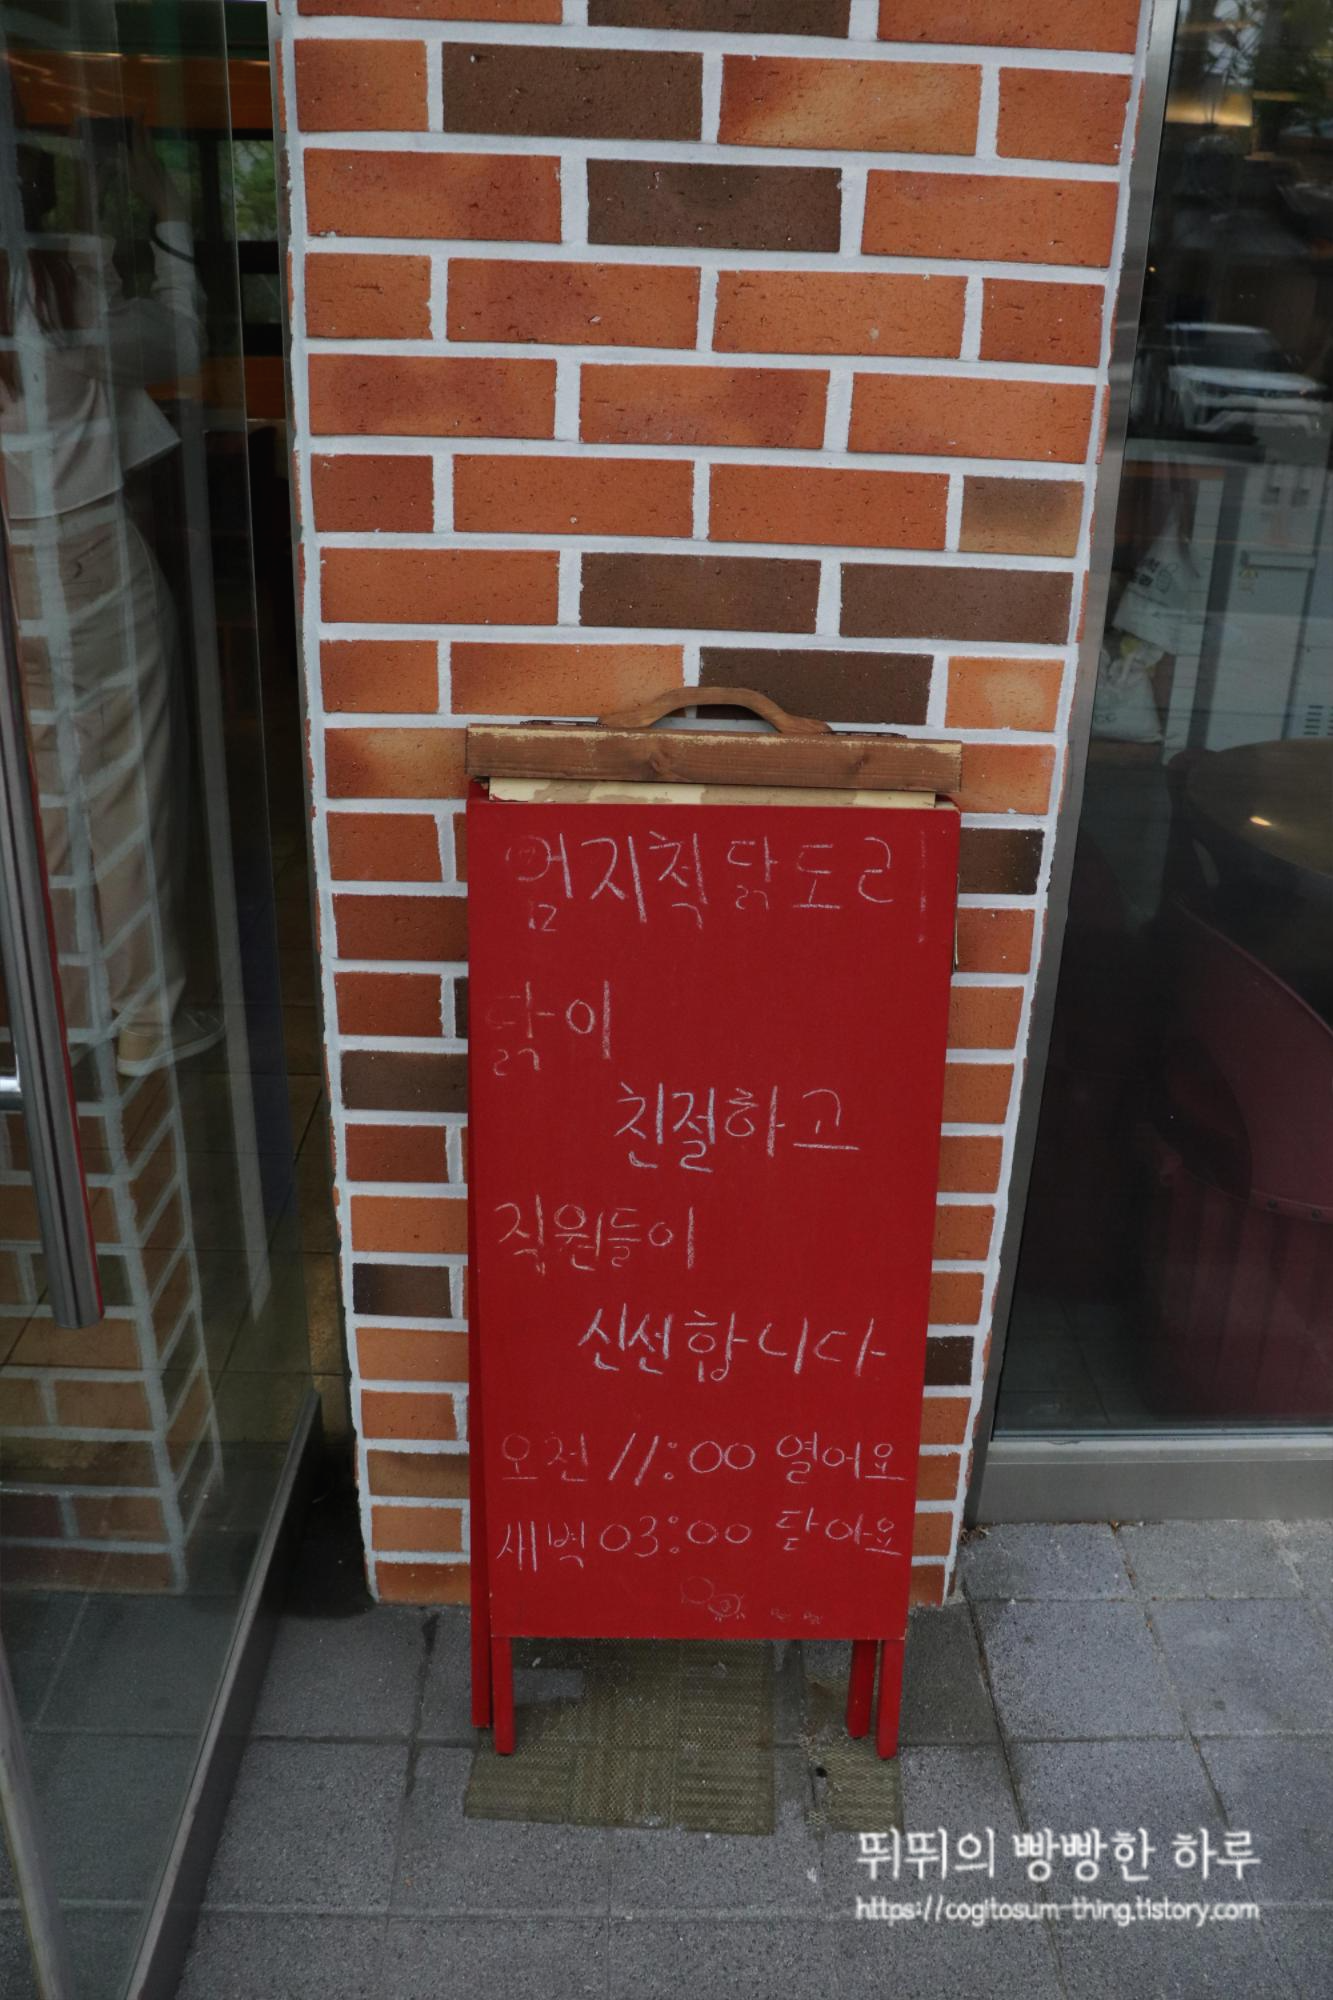 엄지척닭도리
닭이
친절하고
직원들이
신선합니다
오전 11:00 열어요
새벽 03:00 닫아요
뛰뛰의 빵빵한 하루
https://cogitosum-thing.tistory.com